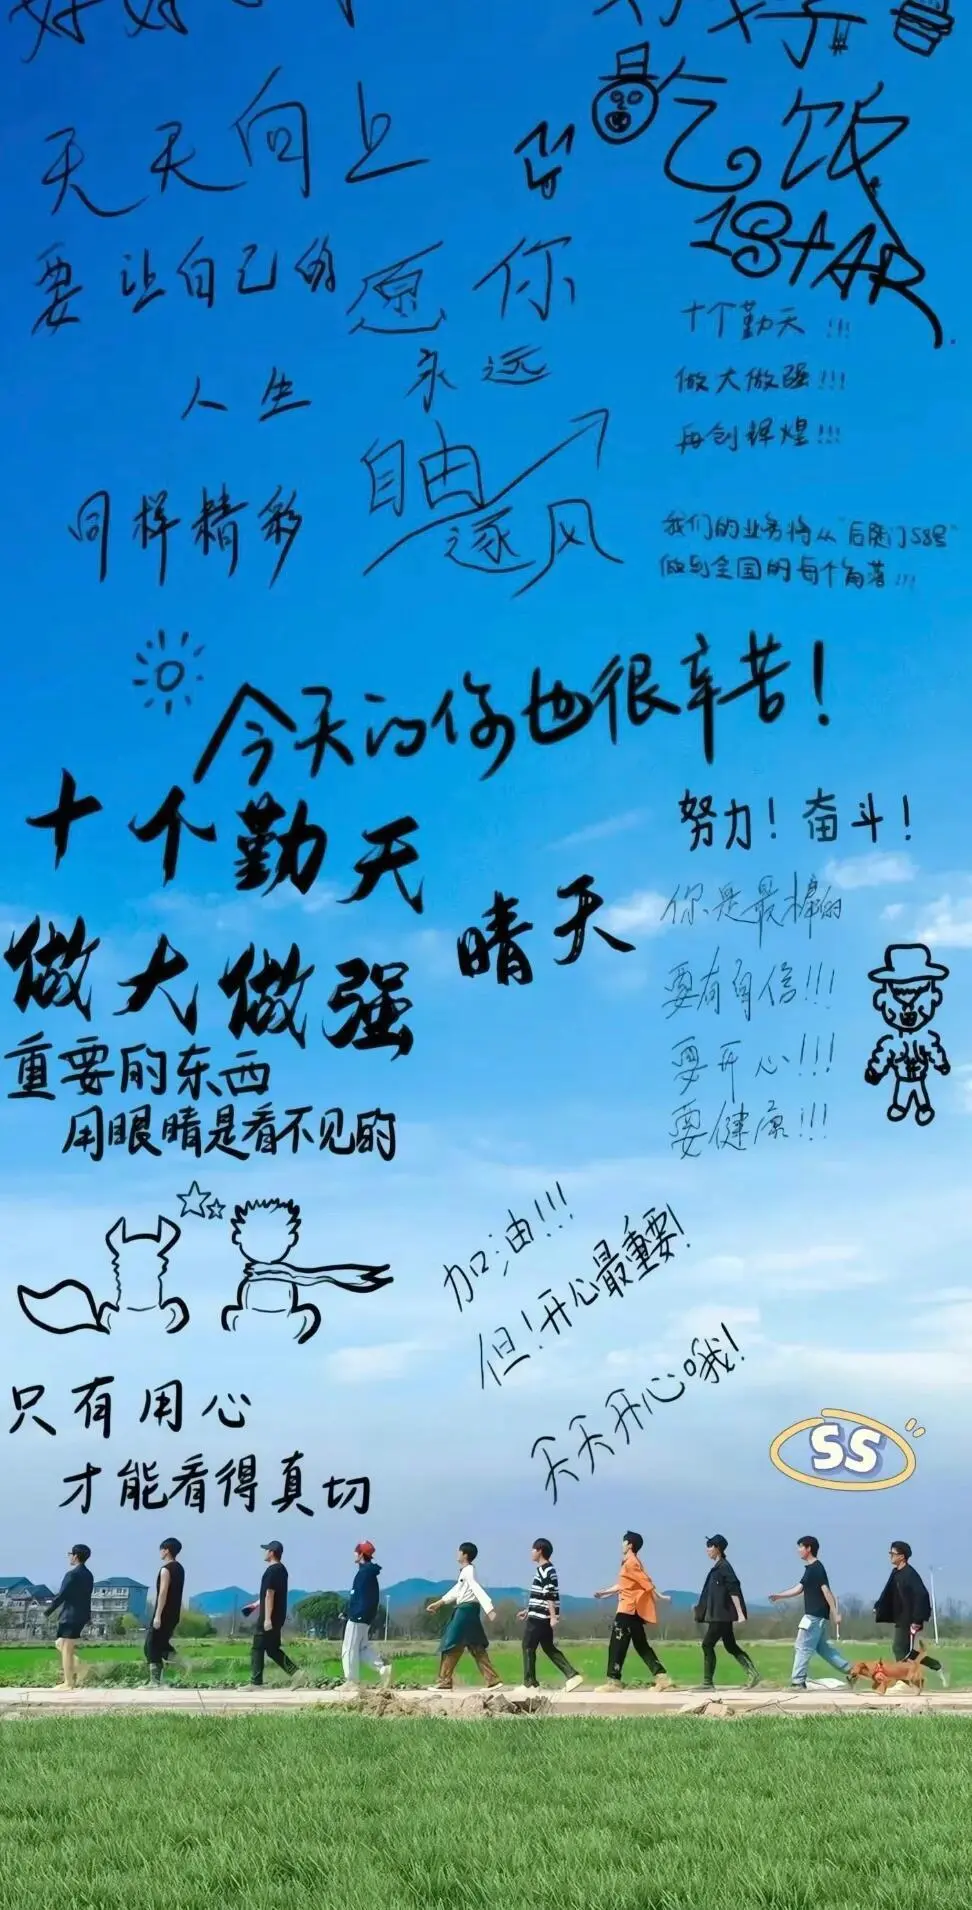 天天向上
好好
吃饭
1STAR
要让自己的
人生
同样精彩
愿你
永远
自由
逐风
十个勤天!!!
做大做强!!!
再创辉煌!!!
我们的业务将从“后陡门58号”
做到全国的每个角落!!!
今天的你也很辛苦!
十个勤天
做大做强
晴天
努力!奋斗!
你是最棒的
要有自信!!!
要开心!!!
要健康!!!
重要的东西
用眼睛是看不见的
加油!!!
但!开心最重要!
天天开心哦!
只有用心
才能看得真切
SS